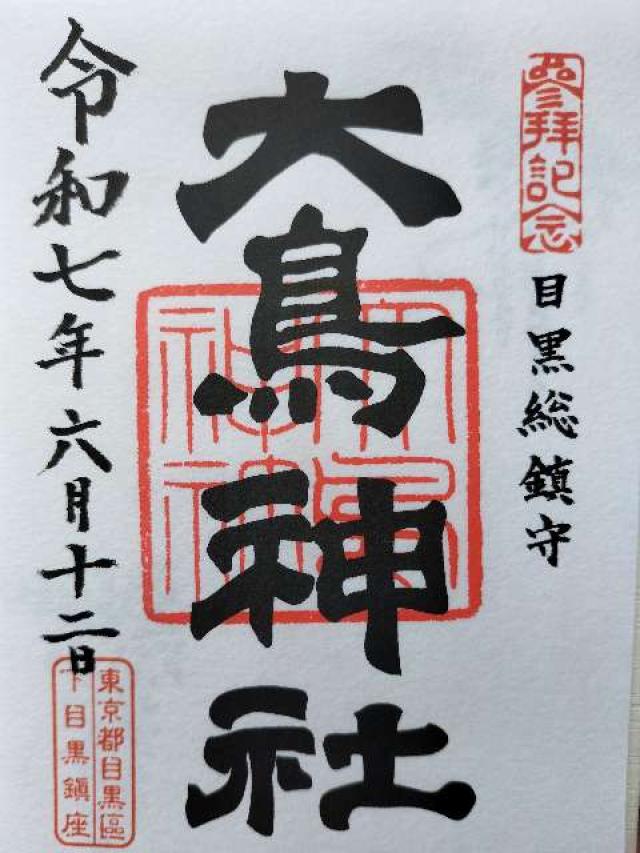 參拜記念
目黒総鎮守
大鳥神社
大鳥神社
令和七年六月十二日
東京都目黒區
下目黒鎮座